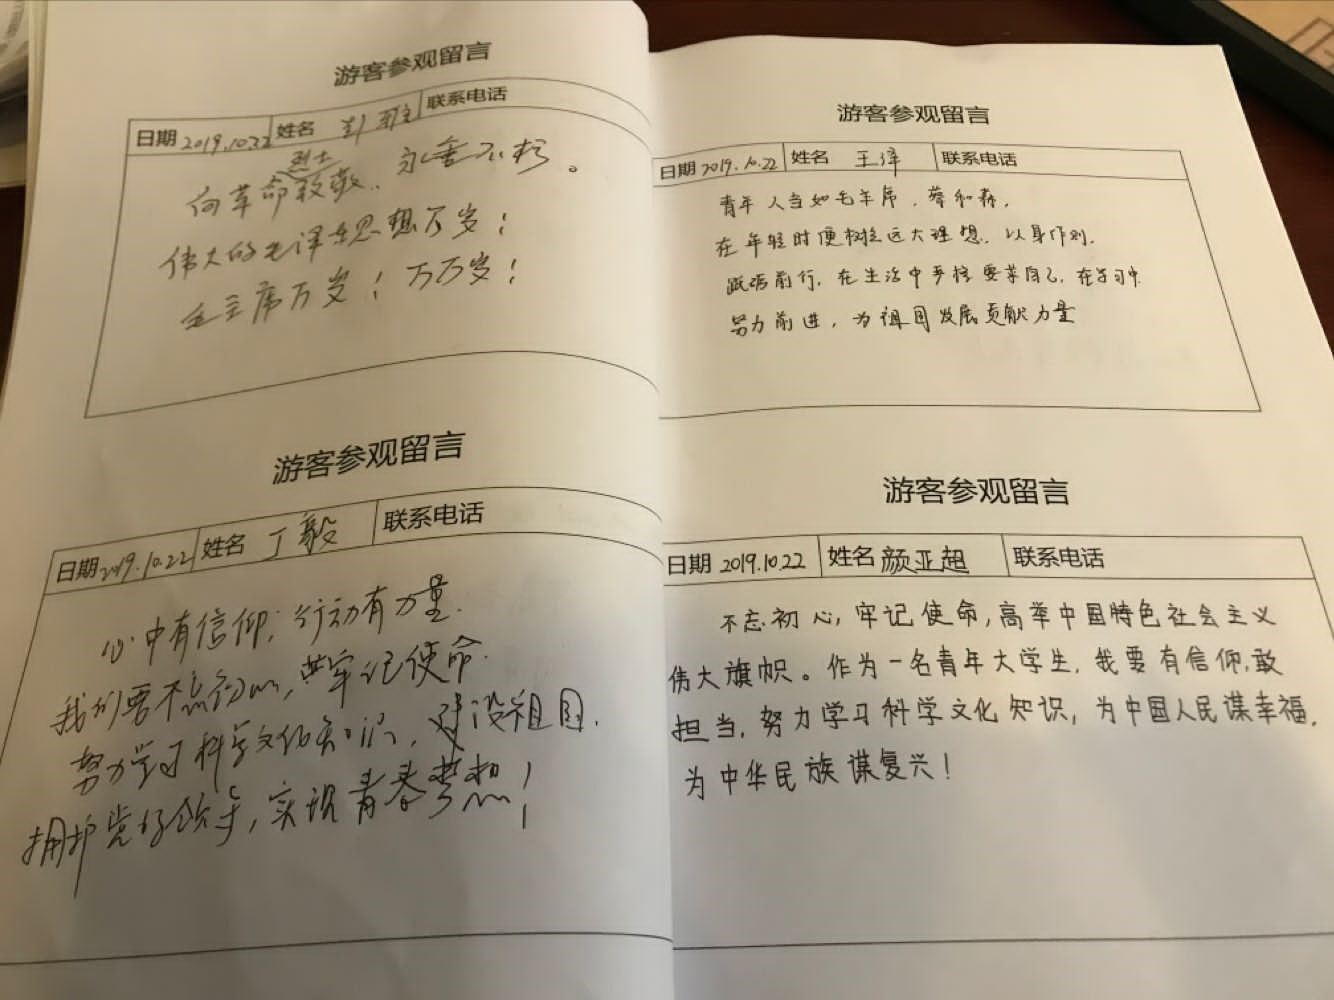 游客参观留言
日期 2019.10.22 姓名 彭 联系电话
向革命烈士致敬.永垂不朽。
伟大的毛泽东思想万岁!
毛主席万岁!万万岁!
游客参观留言
日期 2019.10.22 姓名 丁毅 联系电话
心中有信仰,行动有力量.
我们要不忘初心,牢记使命.
努力学习科学文化知识,建设祖国.
拥护党的领导,实现青春梦想!
游客参观留言
日期 2019.10.22 姓名 王泽 联系电话
青年人当如毛主席、蔡和森,
在年轻时便树立远大理想.以身作则.
砥砺前行.在生活中严格要求自己.在学习中
努力前进,为祖国发展贡献力量
游客参观留言
日期 2019.10.22 姓名 颜亚超 联系电话
不忘初心,牢记使命,高举中国特色社会主义
伟大旗帜。作为一名青年大学生,我要有信仰,敢
担当,努力学习科学文化知识,为中国人民谋幸福,
为中华民族谋复兴!